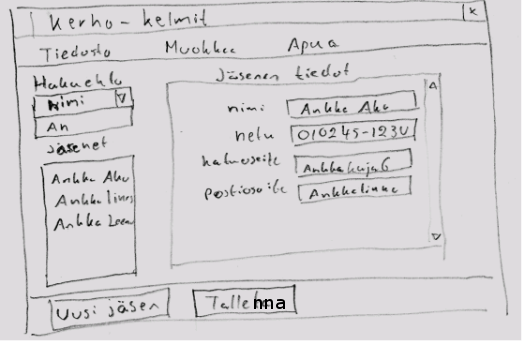 Kerho-kelmit
x
Tiedosto Muokkaa Apua
Hakuehto
nimi
An
jäsenet
Ankka Aku
Ankka Iines
Ankka Leena
Jäsenen tiedot
nimi Ankka Aku
hetu 010245-123U
katuosoite Ankkakuja 6
postiosoite Ankkalinna
Uusi jäsen Tallenna